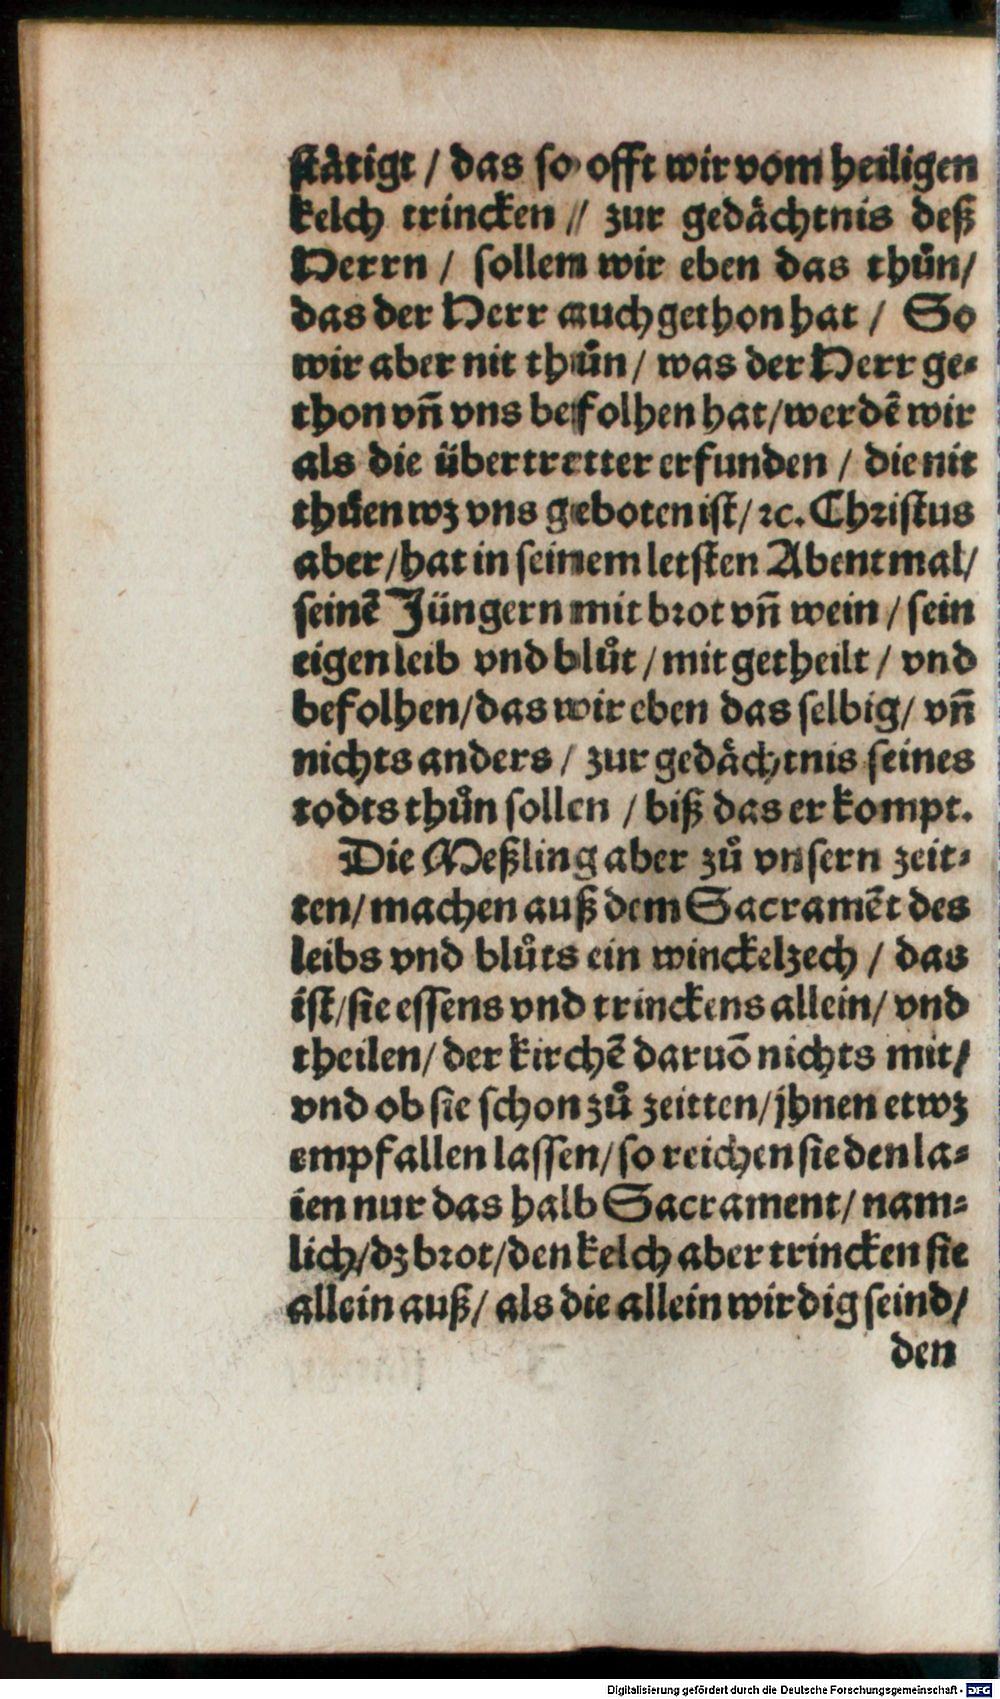 stätigt / das so offt wir vom heiligen
kelch trincken // zur gedächtnis deß
Herrn / sollem wir eben das thůn/
das der Herr auch gethon hat / So
wir aber nit thůn / was der Herr ge⸗
thon vn̄ vns befolhen hat/werdē wir
als die übertretter erfunden / die nit
thůen wz vns geboten ist/ ꝛc. Chꝛistus
aber/hat in seinem letsten Abentmal/
seinē Jüngern mit bꝛot vn̄ wein / sein
eigen leib vnd blůt / mit getheilt / vnd
befolhen/das wir eben das selbig/ vn̄
nichts anders / zur gedächtnis seines
todts thůn sollen / biß das er kompt.
Die Meßling aber zů vnsern zeit⸗
ten/machen auß dem Sacramēt des
leibs vnd blůts ein winckelzech / das
ist/sie essens vnd trinckens allein/ vnd
theilen/ der kirchē daruō nichts mit/
vnd ob sie schon zů zeitten/jhnen etwz
empfallen lassen/so reichen sie den la⸗
ien nur das halb Sacrament/ nam⸗
lich/dz bꝛot/den kelch aber trincken sie
allein auß/ als die allein wirdig seind/
den
Digitalisierung gefördert durch die Deutsche Forschungsgemeinschaft - DFG